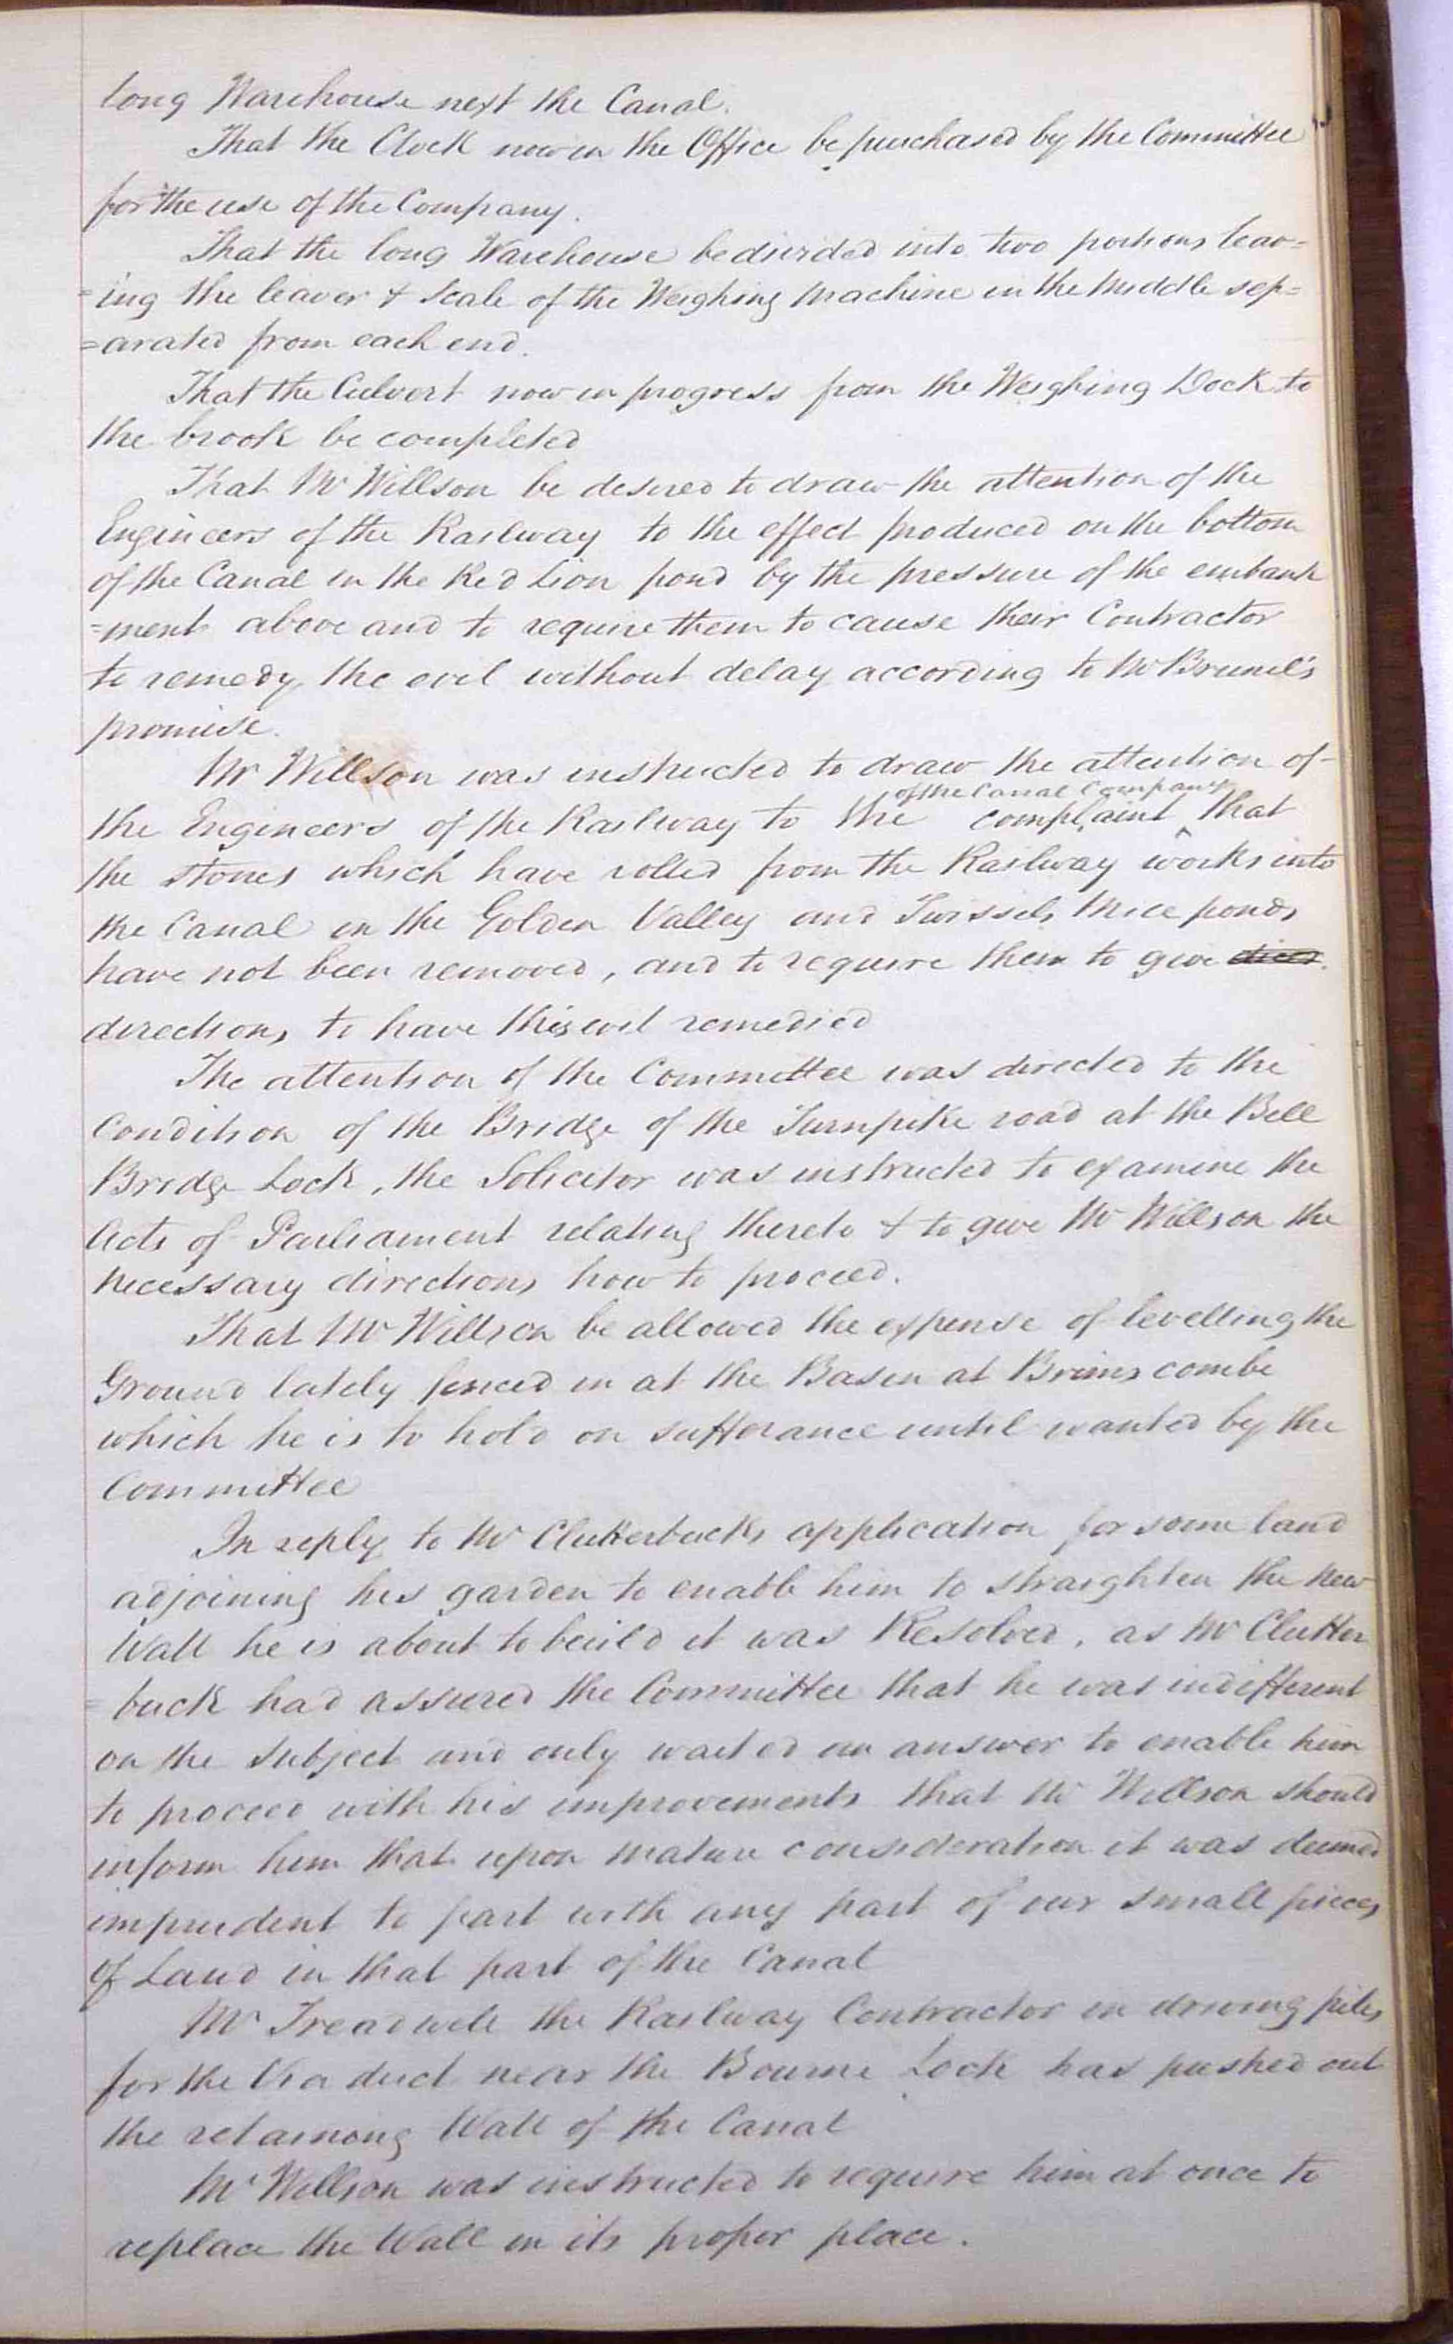 long Warehouse next the Canal.
That the Clock now in the Office be purchased by the Committee
for the use of the Company.
That the long Warehouse be divided into two portions leav=
=ing the leaver & scale of the Weighing Machine in the Middle sep=
=arated from each end.
That the Culvert now in progress from the Weighing Dock to
the brook be completed
That Mr Willson be desired to draw the attention of the
Engineers of the Railway to the effect produced on the bottom
of the Canal in the Red Lion pond by the pressure of the embank
=ment above and to require them to cause their Contractor
to remedy the evil without delay according to Mr Brunel's
promise.
Mr Willson was instructed to draw the attention of
of the Canal Company
the Engineers of the Railway to the complaint ^ that
the stones which have rolled from the Railway works into
the Canal in the Golden Valley and Twissels Mice ponds
have not been removed, and to require them to give
directions to have this evil remedied
The attention of the Committee was directed to the
Condition of the Bridge of the Turnpike road at the Bell
Bridge Lock, the Solicitor was instructed to examine the
Acts of Parliament relating thereto & to give Mr Willson the
necessary directions how to proceed.
That Mr Willson be allowed the expense of levelling the
Ground lately fenced in at the Basin at Brimscombe
which he is to hold on sufferance until wanted by the
Committee
In reply to Mr Clutterbucks application for some land
adjoining his garden to enable him to straighten the new
Wall he is about to build it was Resolved, as Mr Clutter
=buck had assured the Committee that he was indifferent
on the subject and only waited an answer to enable him
to proceed with his improvements that Mr Willson should
inform him that upon mature consideration it was deemed
imprudent to part with any part of our small pieces
of Land in that part of the Canal
Mr Treadwell the Railway Contractor in driving piles
for the Viaduct near the Bourne Lock has pushed out
the retaining Wall of the Canal
Mr Willson was instructed to require him at once to
replace the Wall in its proper place.